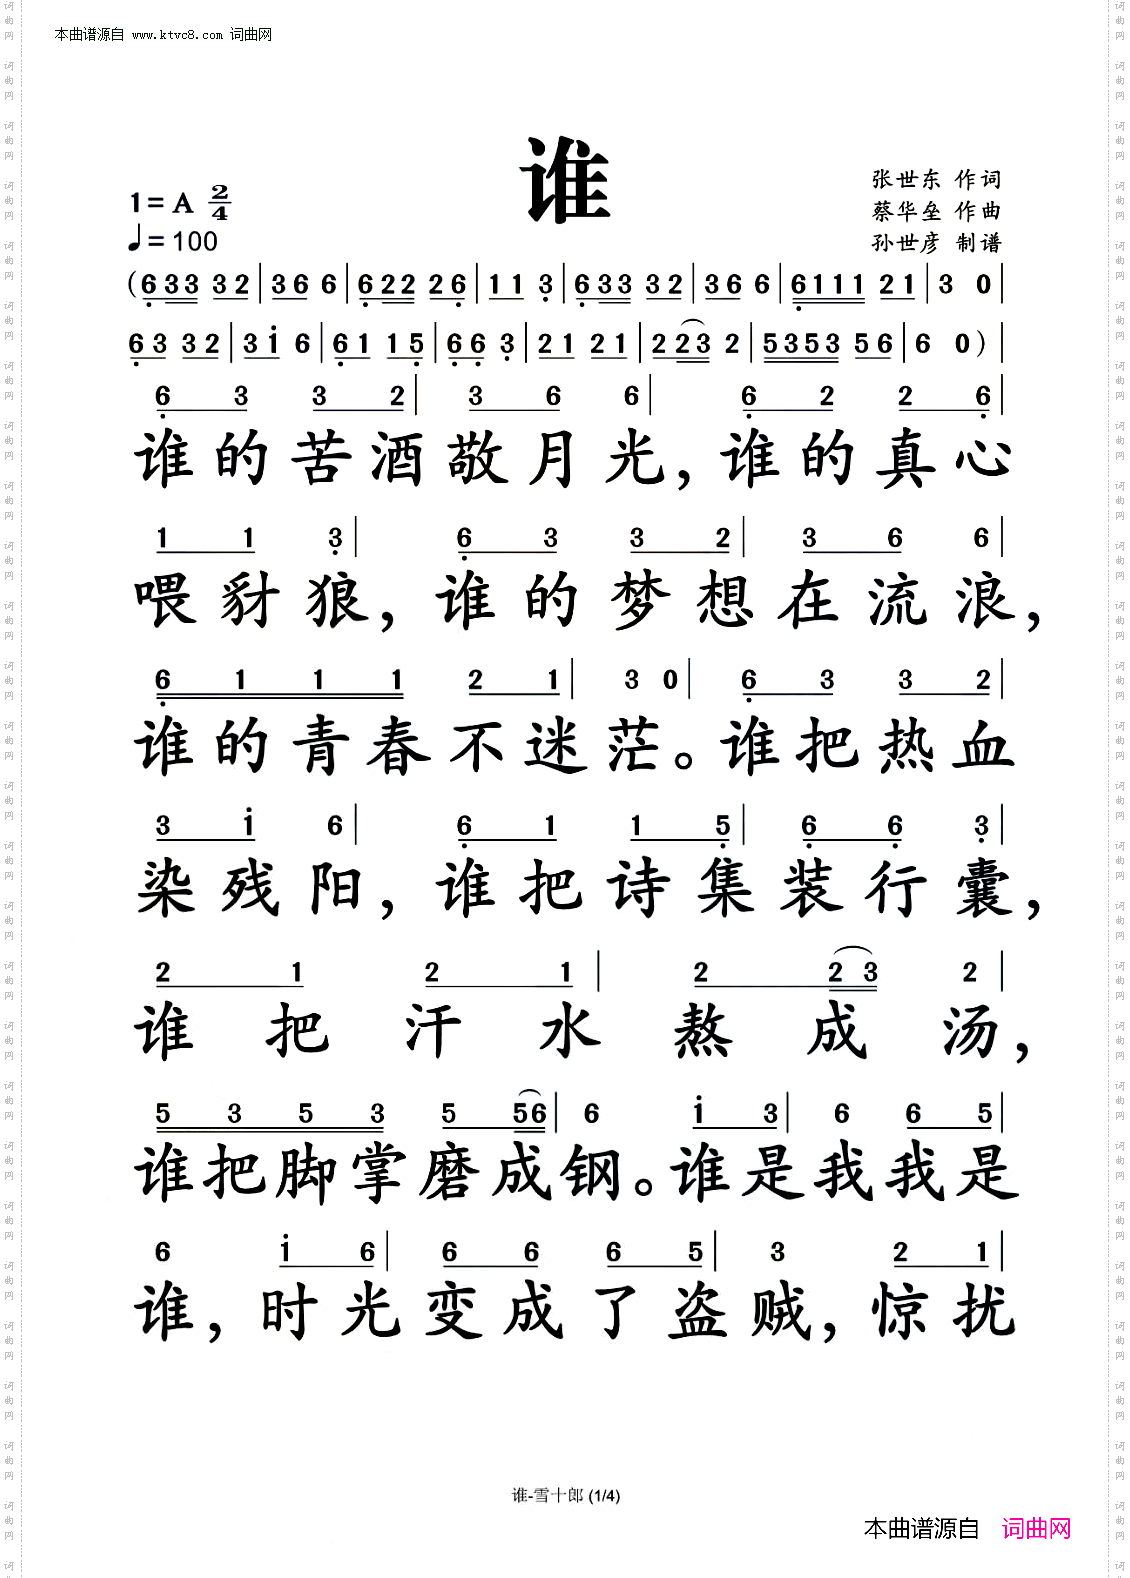 本曲谱源自 www.ktvc8.com 词曲网
谁
张世东 作词
1= A 2/4
蔡华垒 作曲
♩= 100
孙世彦 制谱
(6̣33 32|36 6|6̣22 26̣|11 3̣|6̣33 32|36 6|6̣111 21|3 0|
6̣3 32|3i 6|6̣1 15̣|6̣6̣ 3̣|21 21|223 2|5353 56|6 0)|
6̣ 3 3 2| 3 6 6| 6̣ 2 2 6̣|
谁的苦酒敬月光，谁的真心
1 1 3̣| 6̣ 3 3 2| 3 6 6|
喂豺狼，谁的梦想在流浪，
6̣ 1 1 1 2 1| 3 0| 6̣ 3 3 2|
谁的青春不迷茫。谁把热血
3 i 6| 6̣ 1 1 5̣| 6̣ 6̣ 3̣|
染残阳，谁把诗集装行囊，
2 1 2 1| 2 2 3 2|
谁把汗水熬成汤，
5 3 5 3 5 56| 6 i 3| 6 6 5|
谁把脚掌磨成钢。谁是我我是
6 i 6| 6 6 6 5| 3 2 1|
谁，时光变成了盗贼，惊扰
谁-雪十郎 (1/4)
本曲谱源自 词曲网